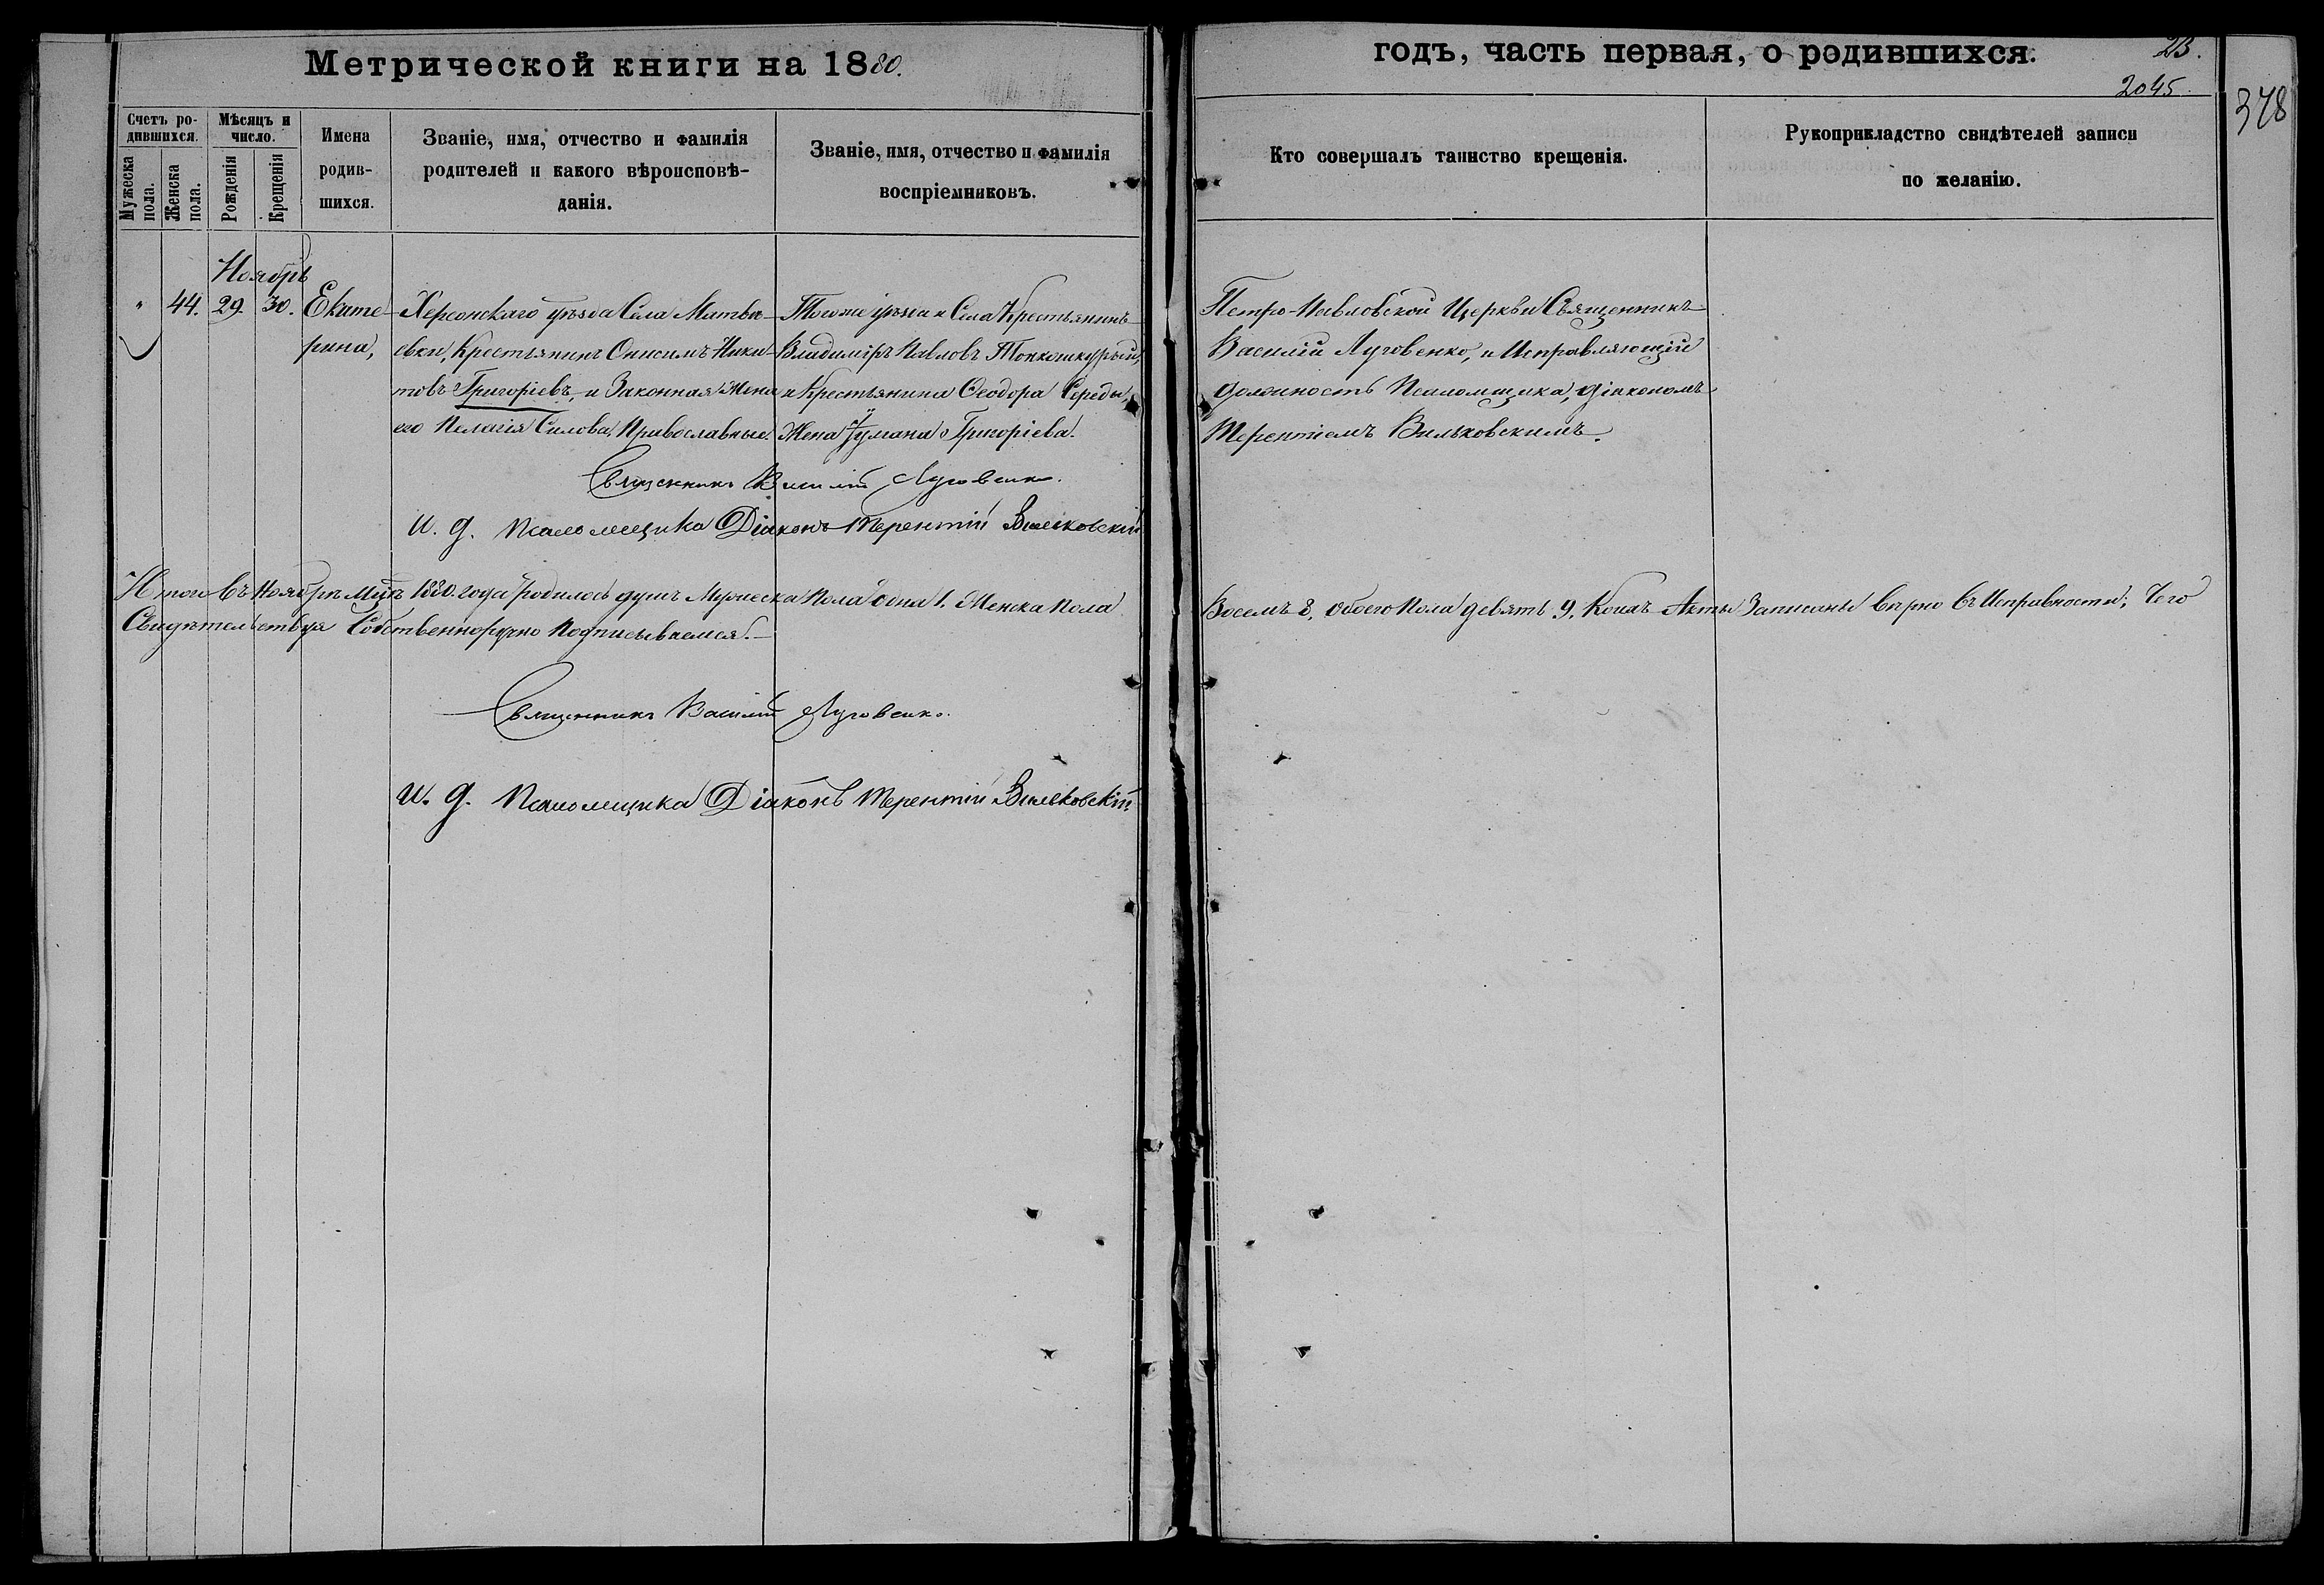 Метрической книги на 1880.
годъ, часть первая, о родившихся.
23.
2045.
378
Счетъ ро-
дившихся.
Мужеска
пола.
Женска
пола.
Мѣсяцъ и
число.
Рожденія
Крещенія
Имена
родив-
шихся.
Званіе, имя, отчество и фамилія
родителей и какого вѣроисповѣ-
данія.
Званіе, имя, отчество и фамилія
воспріемниковъ.
Кто совершалъ таинство крещенія.
Рукоприкладство свидѣтелей записи
по желанію.
Ноябрь
" 44. 29. 30. Екате-
рина,
Херсонскаго уѣзда Села Матвѣ-
евки, Крестьянинъ Онисимъ Ники-
товъ Григоріевъ, и Законная Жена
его Пелагія Силова, Православные.
Тогоже уѣзда и Села Крестьянинъ
Владиміръ Павловъ Тонкошкурый,
и Крестьянина Ѳеодора Середы,
Жена Григоріева.
Петро-Павловской Церкви Священникъ
Василій Луговенко, и Исправляющій
должность Псаломщика, діакономъ
Терентіемъ Вильковскимъ.
Священникъ Василій Луговенко.
И. д. Псаломщика Діаконъ Терентій Вильковскій
Итого въ Ноябрѣ Мцѣ 1880. года родилось душъ Мужеска Пола одна 1. Женска Пола
Восемъ 8. обоего Пола девять 9. Коихъ Акты Записаны вѣрно въ Исправности, Чего
Свидѣтельствуя Собственноручно Подписываемся.
Священникъ Василій Луговенко.
И. д. Псаломщика Діаконъ Терентій Вильковскій